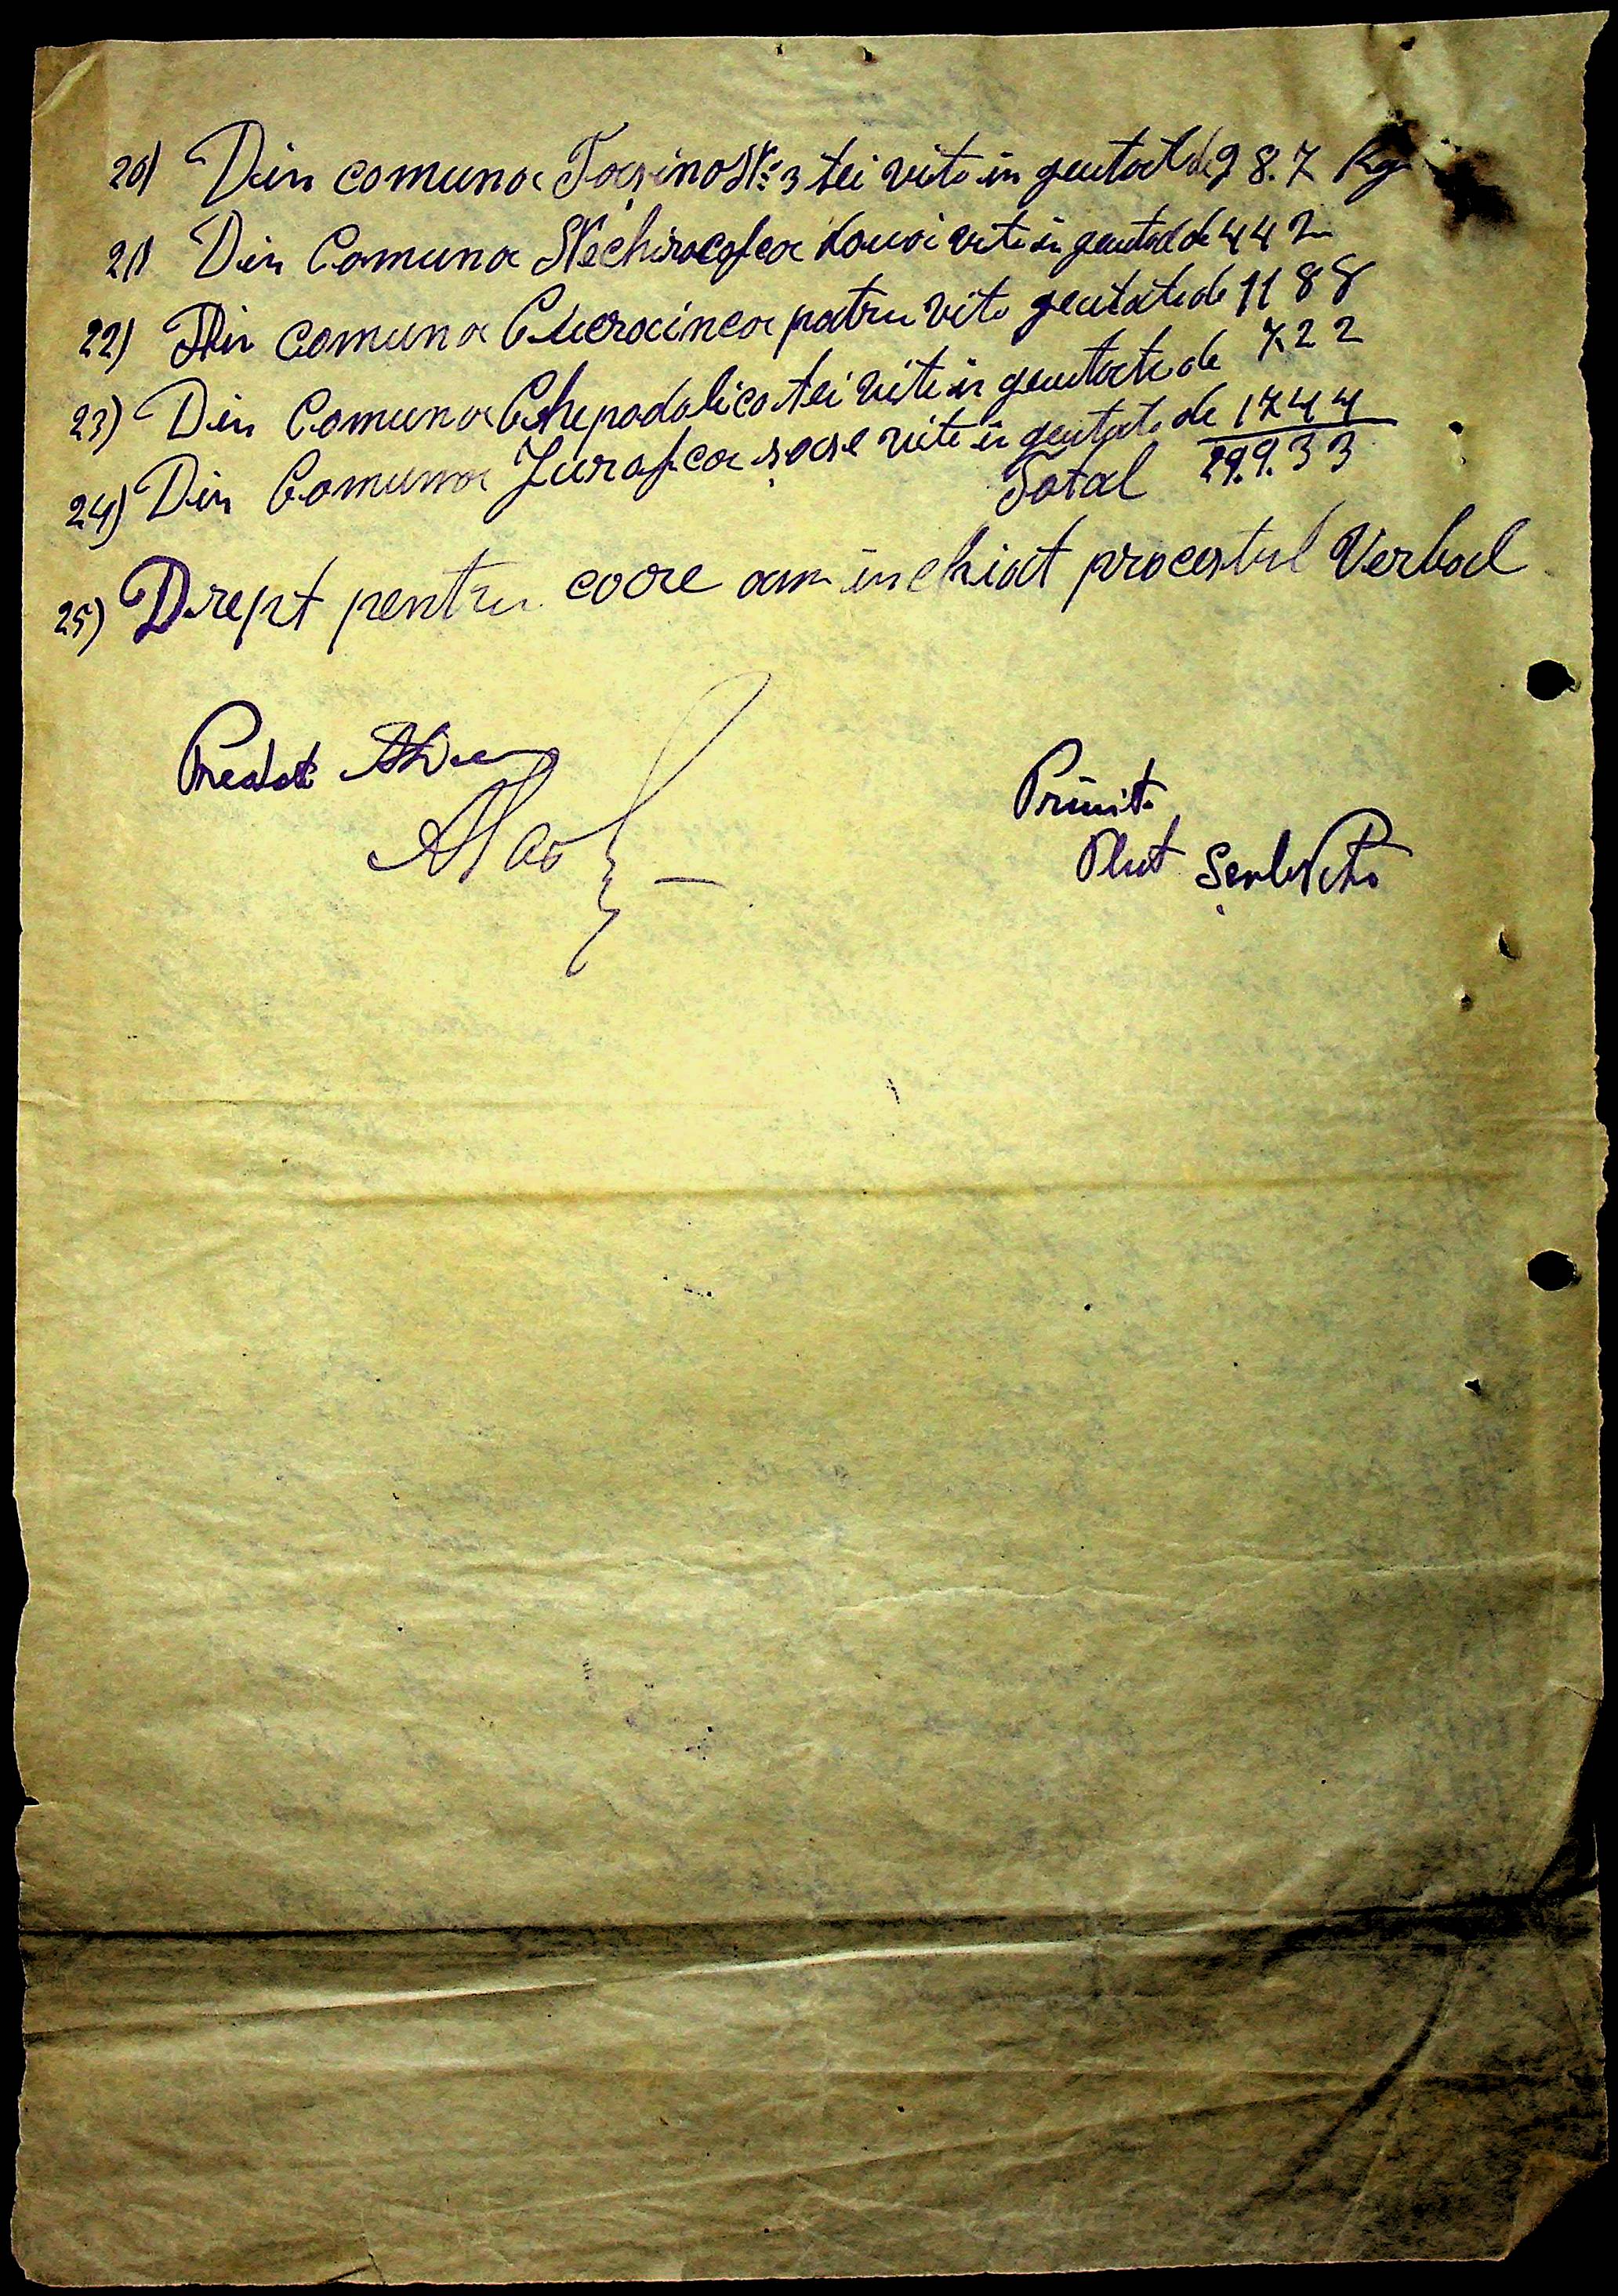 20) Din comuna Tocsino No 3 tei vite in greutate de 987 Kg
21) Din Comuna Nechiracofca doua vite in greutate de 442
22) Din comuna Cucraincea patru vite greutate de 1188
23) Din Comuna Chepodolica tei vite in greutate de 722
24) Din Comuna Jurafca șase vite in greutate de 1744
Total 29.933
25) Drept pentru care am inchiat procestul Verbal
Predat
Primit
Plut